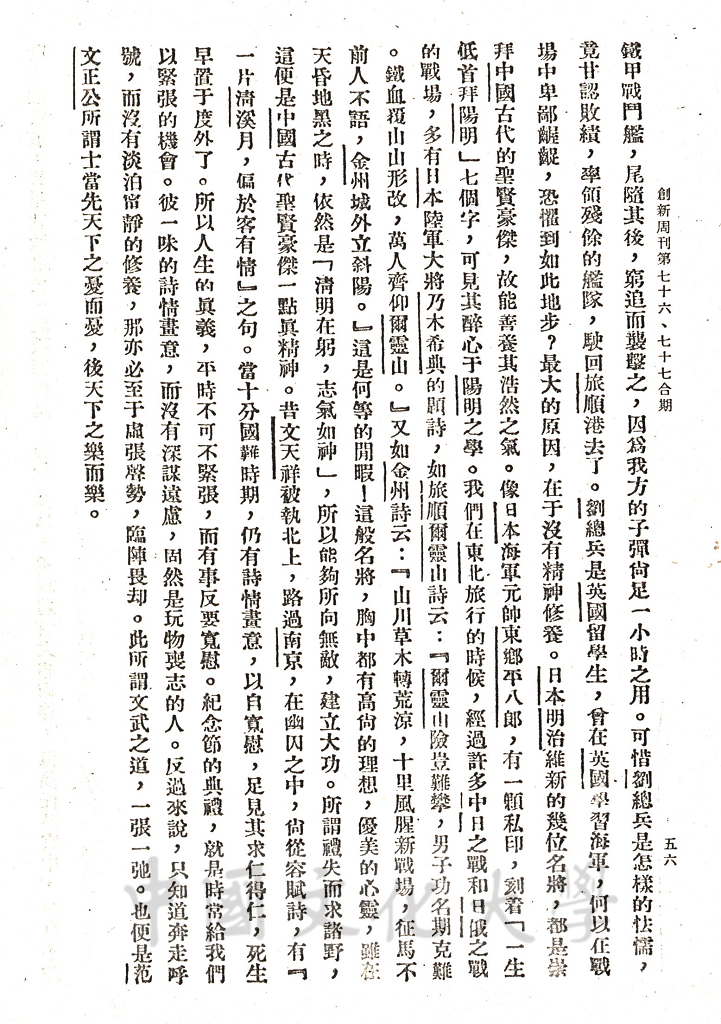 創新周刊第七十六、七十七合期
五六
鐵甲戰鬥艦，尾隨其後，窮追而襲擊之，因為我方的子彈尙足一小時之用。可惜劉總兵是怎樣的怯懦，
竟甘認敗績，率領殘餘的艦隊，駛回旅順港去了。劉總兵是英國留學生，曾在英國學習海軍，何以在戰
場中卑鄙齷齪，恐懼到如此地步？最大的原因，在于沒有精神修養。日本明治維新的幾位名將，都是崇
拜中國古代的聖賢豪傑，故能善養其浩然之氣。像日本海軍元帥東鄉平八郎，有一顆私印，刻着「一生
低首拜陽明」七個字，可見其醉心于陽明之學。我們在東北旅行的時候，經過許多中日之戰和日俄之戰
的戰場，多有日本陸軍大將乃木希典的題詩，如旅順爾靈山詩云：『爾靈山險豈難攀，男子功名期克難
。鐵血覆山山形改，萬人齊仰爾靈山。』又如金州詩云：『山川草木轉荒涼，十里風腥新戰場，征馬不
前人不語，金州城外立斜陽。』這是何等的閒暇！這般名將，胸中都有高尙的理想，優美的心靈，雖在
天昏地黑之時，依然是「淸明在躬，志氣如神」，所以能夠所向無敵，建立大功。所謂禮失而求諸野，
這便是中國古代聖賢豪傑一點眞精神。昔文天祥被執北上，路過南京，在幽囚之中，尙從容賦詩，有『
一片淸溪月，偏於客有情』之句。當十分國難時期，仍有詩情畫意，以自寬慰，足見其求仁得仁，死生
早置于度外了。所以人生的眞義，平時不可不緊張，而有事反要寬慰。紀念節的典禮，就是時常給我們
以緊張的機會。彼一味的詩情畫意，而沒有深謀遠慮，固然是玩物喪志的人。反過來說，只知道奔走呼
號，而沒有淡泊甯靜的修養，那亦必至于虛張聲勢，臨陣畏却。此所謂文武之道，一張一弛。也便是范
文正公所謂士當先天下之憂而憂，後天下之樂而樂。
中國文化大學